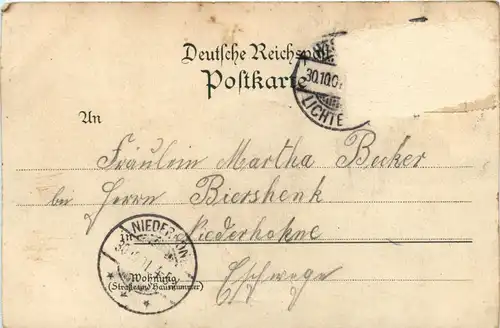 Deutsche Reichspost
Postkarte
30.10.0
LICHTE
An
Fräulein Martha Becker
bei Herrn Biershenk
in Niederhohne
NIEDERHON
Eschwege
Wohnung
(Straße und Hausnummer)